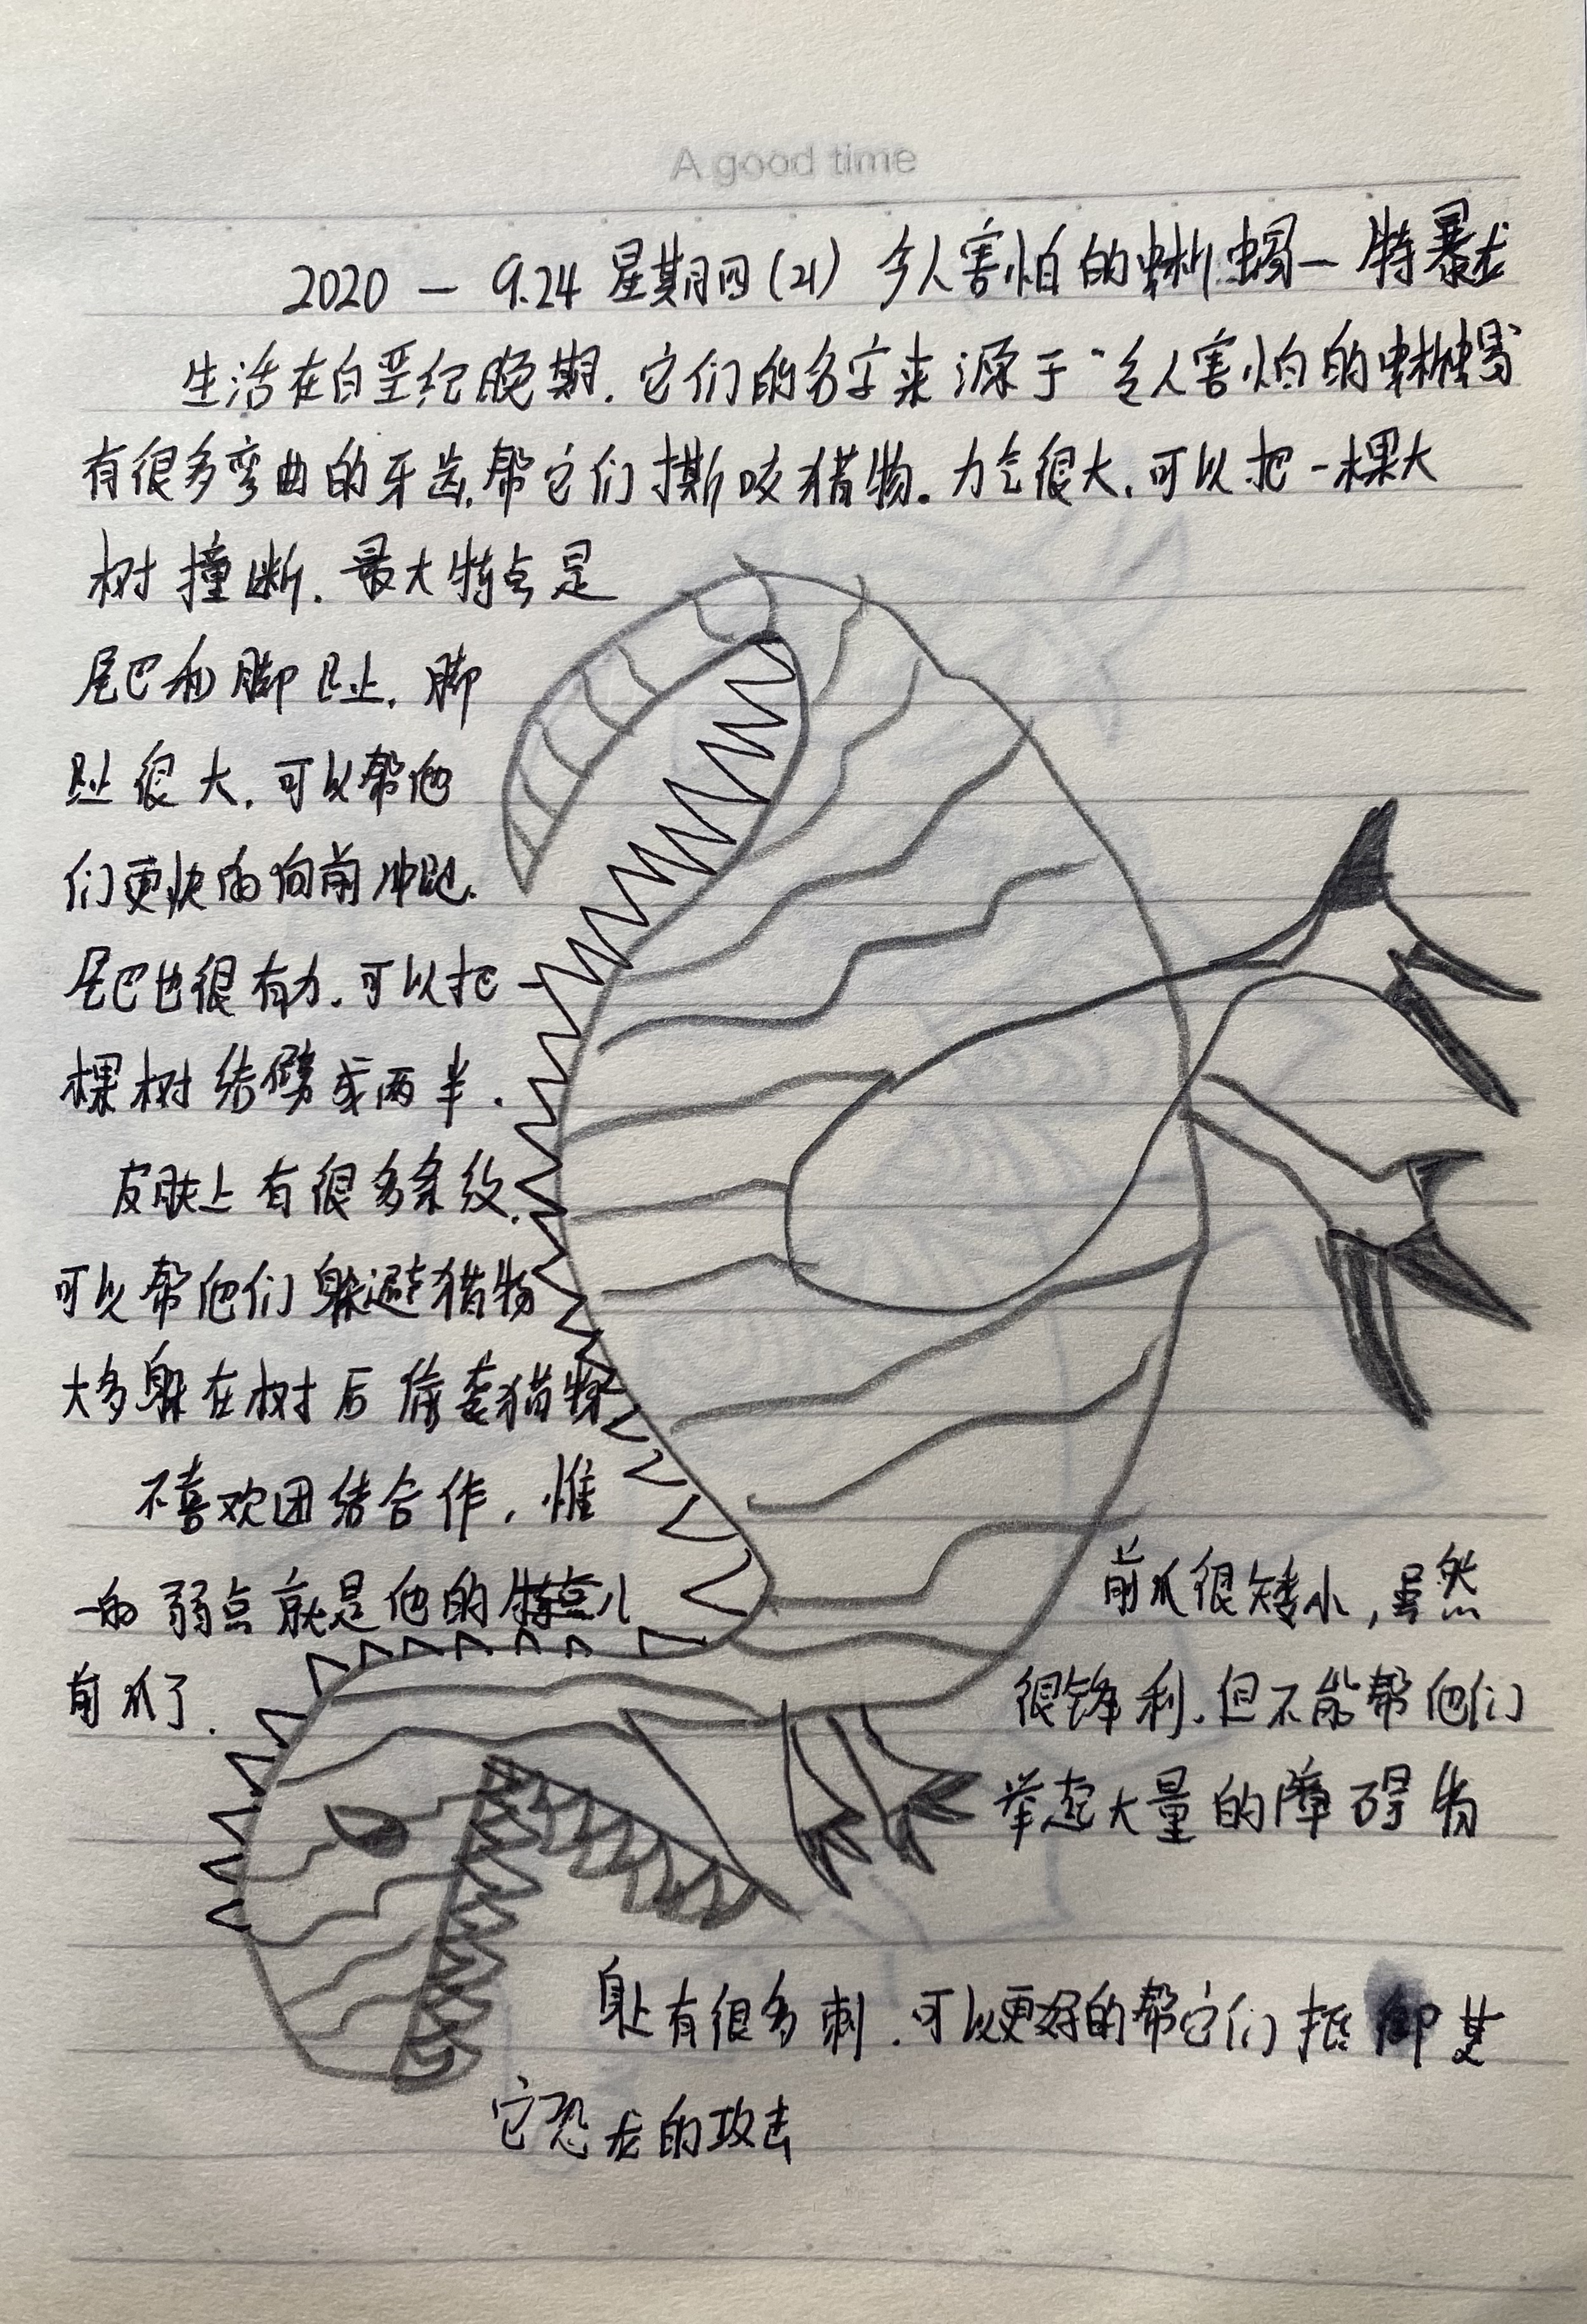 A good time
2020 — 9.24 星期四(21) 令人害怕的蜥蜴—特暴龙
生活在白垩纪晚期.它们的名字来源于“令人害怕的蜥蜴”
有很多弯曲的牙齿,帮它们撕咬猎物.力气很大,可以把一棵大
树撞断.最大特点是
尾巴和脚趾.脚
趾很大,可以帮他
们更快的向前冲跑.
尾巴也很有力.可以把一
棵树给劈成两半.
皮肤上有很多条纹.
可以帮他们躲避猎物
大多躲在树后偷袭猎物
不喜欢团结合作.惟
一的弱点就是他的特点儿
前爪了.
前爪很矮小,虽然
很锋利.但不能帮他们
举起大量的障碍物
身上有很多刺.可以更好的帮它们抵御其
它恐龙的攻击